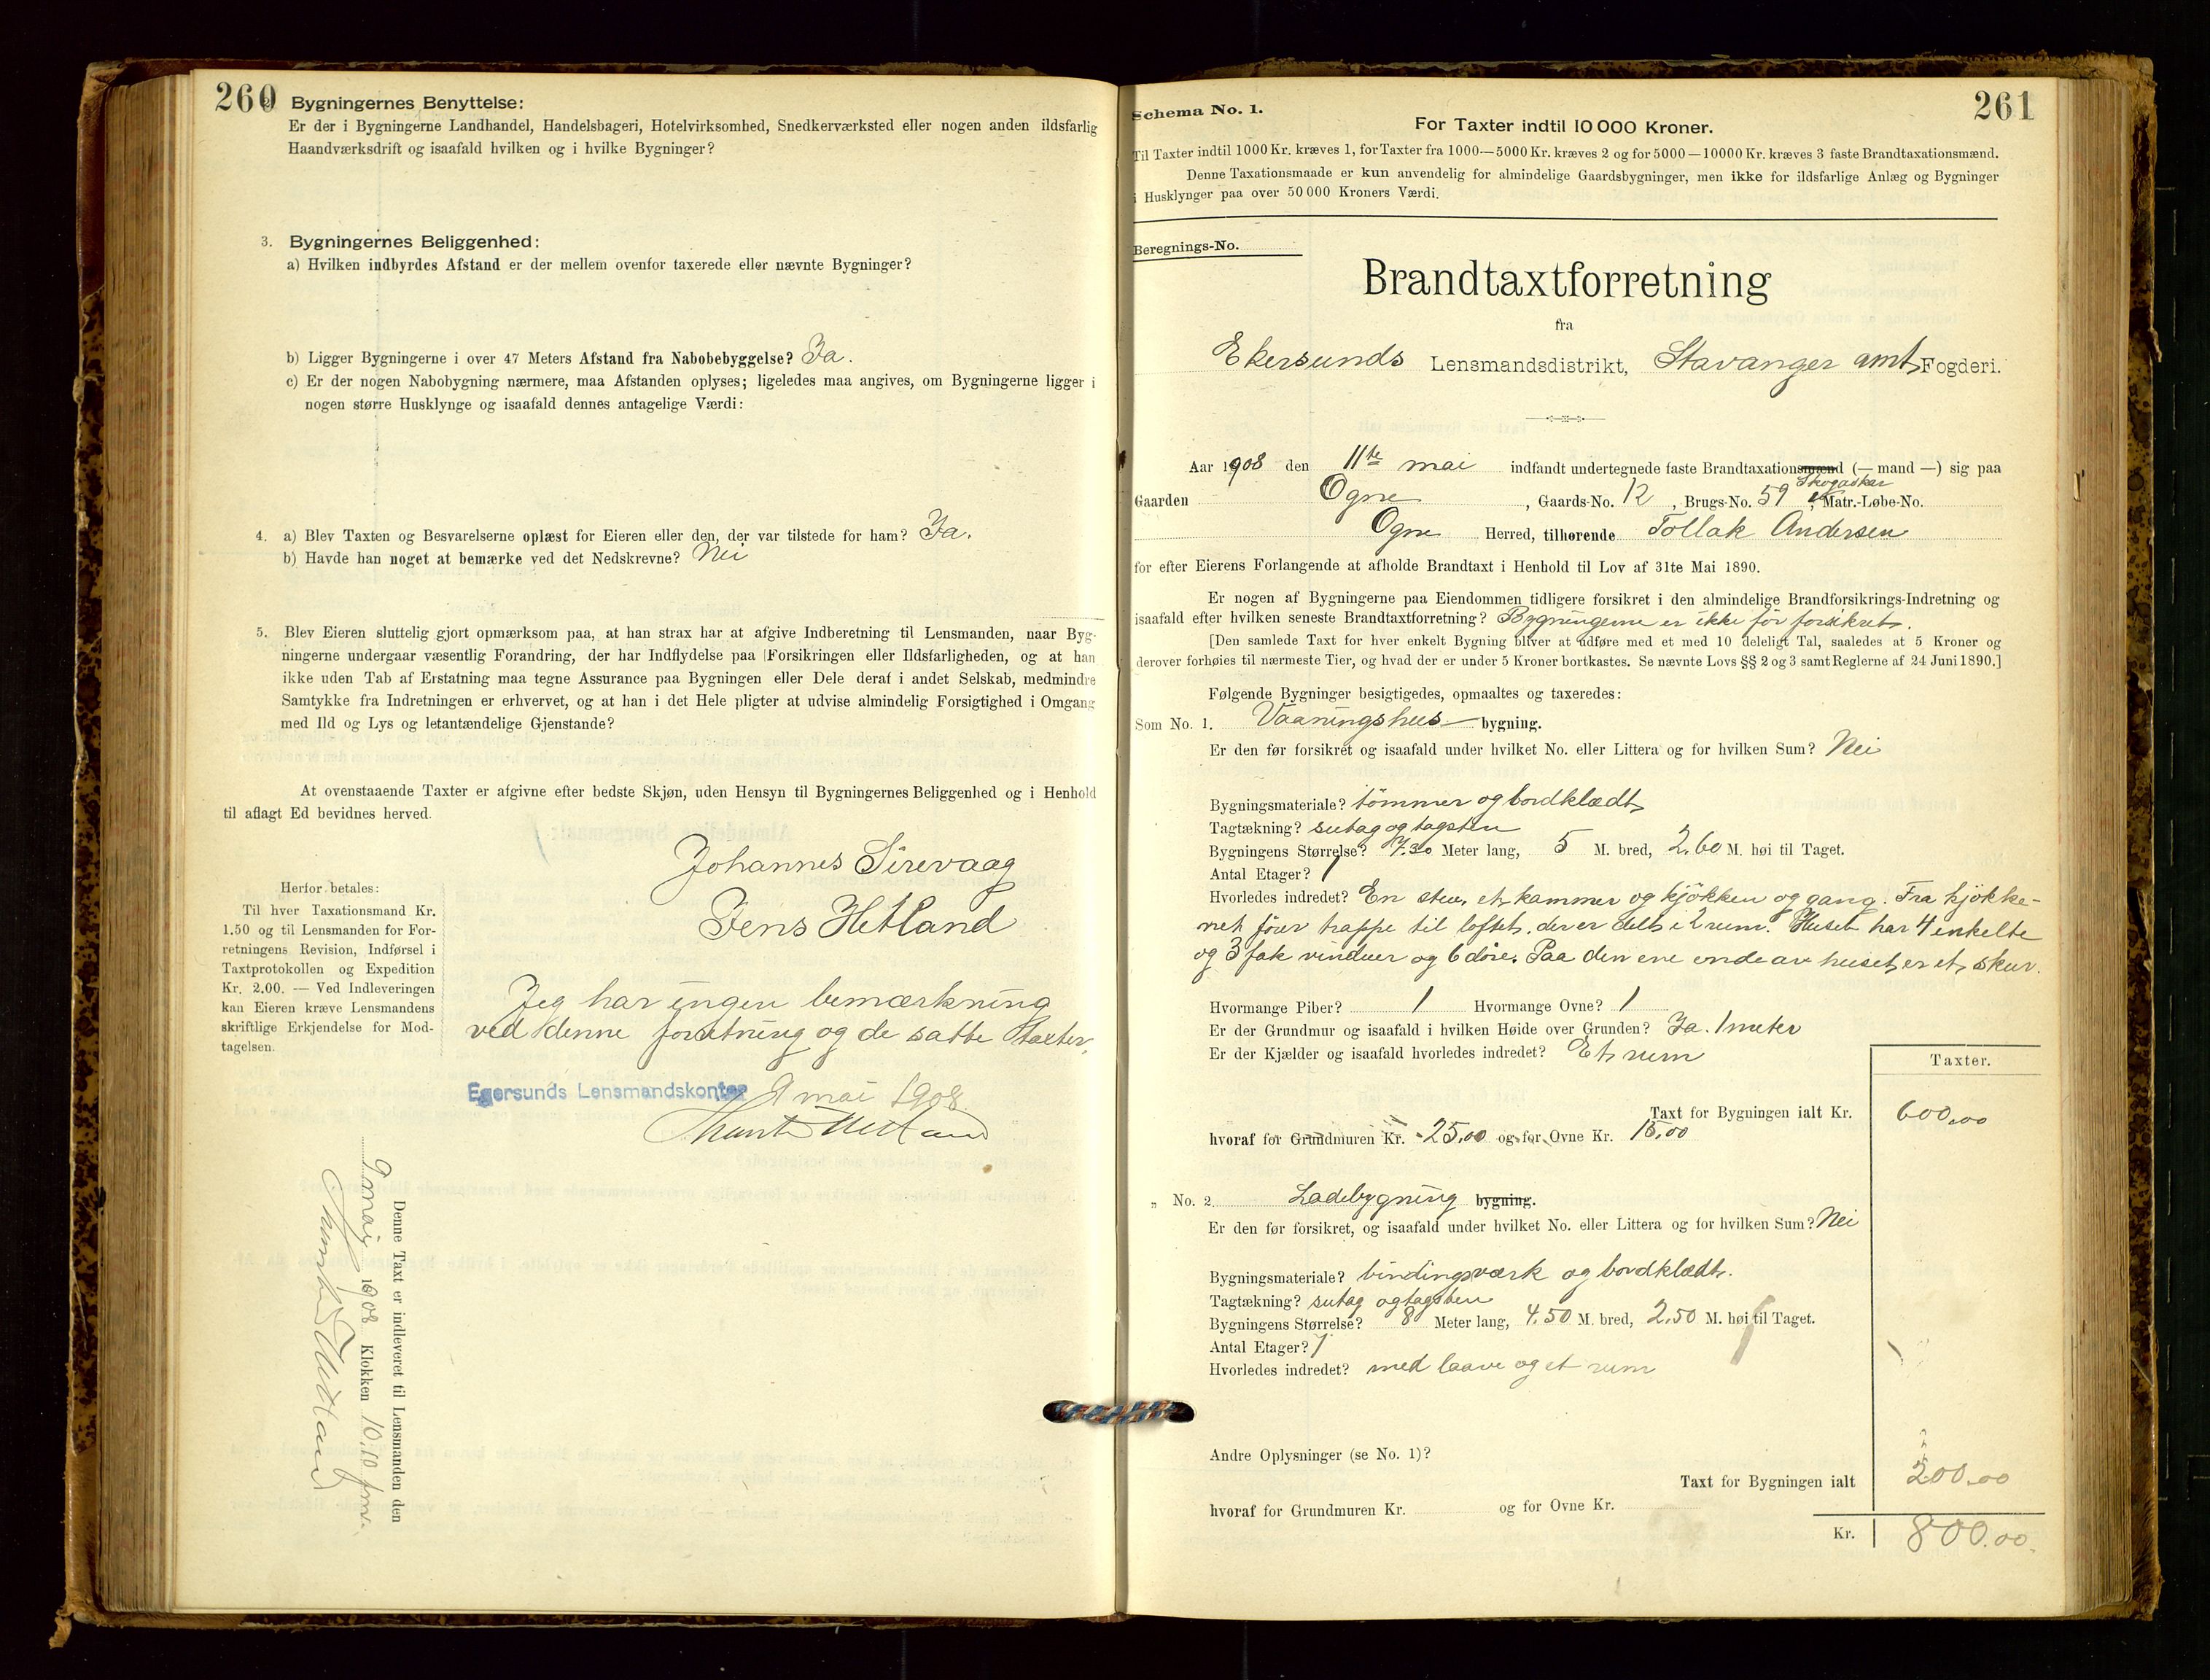 260
2. Bygningernes Benyttelse:
Er der i Bygningerne Landhandel, Handelsbageri, Hotelvirksomhed, Snedkerværksted eller nogen anden ildsfarlig
Haandværksdrift og isaafald hvilken og i hvilke Bygninger?
3. Bygningernes Beliggenhed:
a) Hvilken indbyrdes Afstand er der mellem ovenfor taxerede eller nævnte Bygninger?
b) Ligger Bygningerne i over 47 Meters Afstand fra Nabobebyggelse? Ja.
c) Er der nogen Nabobygning nærmere, maa Afstanden oplyses; ligeledes maa angives, om Bygningerne ligger i
nogen større Husklynge og isaafald dennes antagelige Værdi:
4. a) Blev Taxten og Besvarelserne oplæst for Eieren eller den, der var tilstede for ham? Ja.
b) Havde han noget at bemærke ved det Nedskrevne? Nei
5. Blev Eieren sluttelig gjort opmærksom paa, at han strax har at afgive Indberetning til Lensmanden, naar Byg-
ningerne undergaar væsentlig Forandring, der har Indflydelse paa Forsikringen eller Ildsfarligheden, og at han
ikke uden Tab af Erstatning maa tegne Assurance paa Bygningen eller Dele deraf i andet Selskab, medmindre
Samtykke fra Indretningen er erhvervet, og at han i det Hele pligter at udvise almindelig Forsigtighed i Omgang
med Ild og Lys og letantændelige Gjenstande?
At ovenstaaende Taxter er afgivne efter bedste Skjøn, uden Hensyn til Bygningernes Beliggenhed og i Henhold
til aflagt Ed bevidnes herved.
Johannes Sirevaag
Jens Hetland
Herfor betales:
Til hver Taxationsmand Kr.
1.50 og til Lensmanden for For-
retningens Revision, Indførsel i
Taxtprotokollen og Expedition
Kr. 2.00. — Ved Indleveringen
kan Eieren kræve Lensmandens
skriftlige Erkjendelse for Mod-
tagelsen.
Jeg har ingen bemærkning
ved denne forretning og de satte taxter.
Egersunds Lensmandskontor 9 mai 1908
Denne Taxt er indleveret til Lensmanden den
9 mai 1908 Klokken 10,10 fm.
261
Schema No. 1.
For Taxter indtil 10 000 Kroner.
Til Taxter indtil 1000 Kr. kræves 1, for Taxter fra 1000—5000 Kr. kræves 2 og for 5000—10000 Kr. kræves 3 faste Brandtaxationsmænd.
Denne Taxationsmaade er kun anvendelig for almindelige Gaardsbygninger, men ikke for ildsfarlige Anlæg og Bygninger
i Husklynger paa over 50 000 Kroners Værdi.
Beregnings-No.
Brandtaxtforretning
fra
Ekersunds Lensmandsdistrikt, Stavanger amts Fogderi.
Aar 1908 den 11te mai indfandt undertegnede faste Brandtaxationsmænd (— mand —) sig paa
Gaarden Ogne, Gaards-No. 12, Brugs-No. 59, Matr.-Løbe-No.
Ogne Herred, tilhørende Tollak Andersen
for efter Eierens Forlangende at afholde Brandtaxt i Henhold til Lov af 31te Mai 1890.
Er nogen af Bygningerne paa Eiendommen tidligere forsikret i den almindelige Brandforsikrings-Indretning og
isaafald efter hvilken seneste Brandtaxtforretning? Bygningerne er ikke før forsikret.
[Den samlede Taxt for hver enkelt Bygning bliver at udføre med et med 10 deleligt Tal, saaledes at 5 Kroner og
derover forhøies til nærmeste Tier, og hvad der er under 5 Kroner bortkastes. Se nævnte Lovs §§ 2 og 3 samt Reglerne af 24 Juni 1890.]
Følgende Bygninger besigtigedes, opmaaltes og taxeredes:
Som No. 1. Vaaningshus bygning.
Er den før forsikret og isaafald under hvilket No. eller Littera og for hvilken Sum? Nei
Bygningsmateriale? tömmer og bordklædt
Tagtækning? sutag og tagsten
Bygningens Størrelse? 7.30 Meter lang, 5 M. bred, 2.60 M. høi til Taget.
Antal Etager? 1
Hvorledes indredet? En stue, et kammer og kjökken og gang. Fra kjökke-
net förer trappe til loftet. der er delt i 2 rum. Huset har 4 enkelte
og 3 fak vinduer og 6 döre. Paa den ene ende av huset er et skur.
Hvormange Piber? 1 Hvormange Ovne? 1
Er der Grundmur og isaafald i hvilken Høide over Grunden? Ja. 1 meter
Er der Kjælder og isaafald hvorledes indredet? Et rum
Taxter.
Taxt for Bygningen ialt Kr. 600,00
hvoraf for Grundmuren Kr. 25,00 og for Ovne Kr. 15,00
„ No. 2 Ladebygning bygning.
Er den før forsikret, og isaafald under hvilket No. eller Littera og for hvilken Sum? Nei
Bygningsmateriale? bindingsværk og bordklædt.
Tagtækning? sutag og tagsten
Bygningens Størrelse? 8 Meter lang, 4.50 M. bred, 2.50 M. høi til Taget.
Antal Etager? 1
Hvorledes indredet? med laave og et rum
Andre Oplysninger (se No. 1)?
Taxt for Bygningen ialt 200.00
hvoraf for Grundmuren Kr. og for Ovne Kr.
Kr. 800.00.